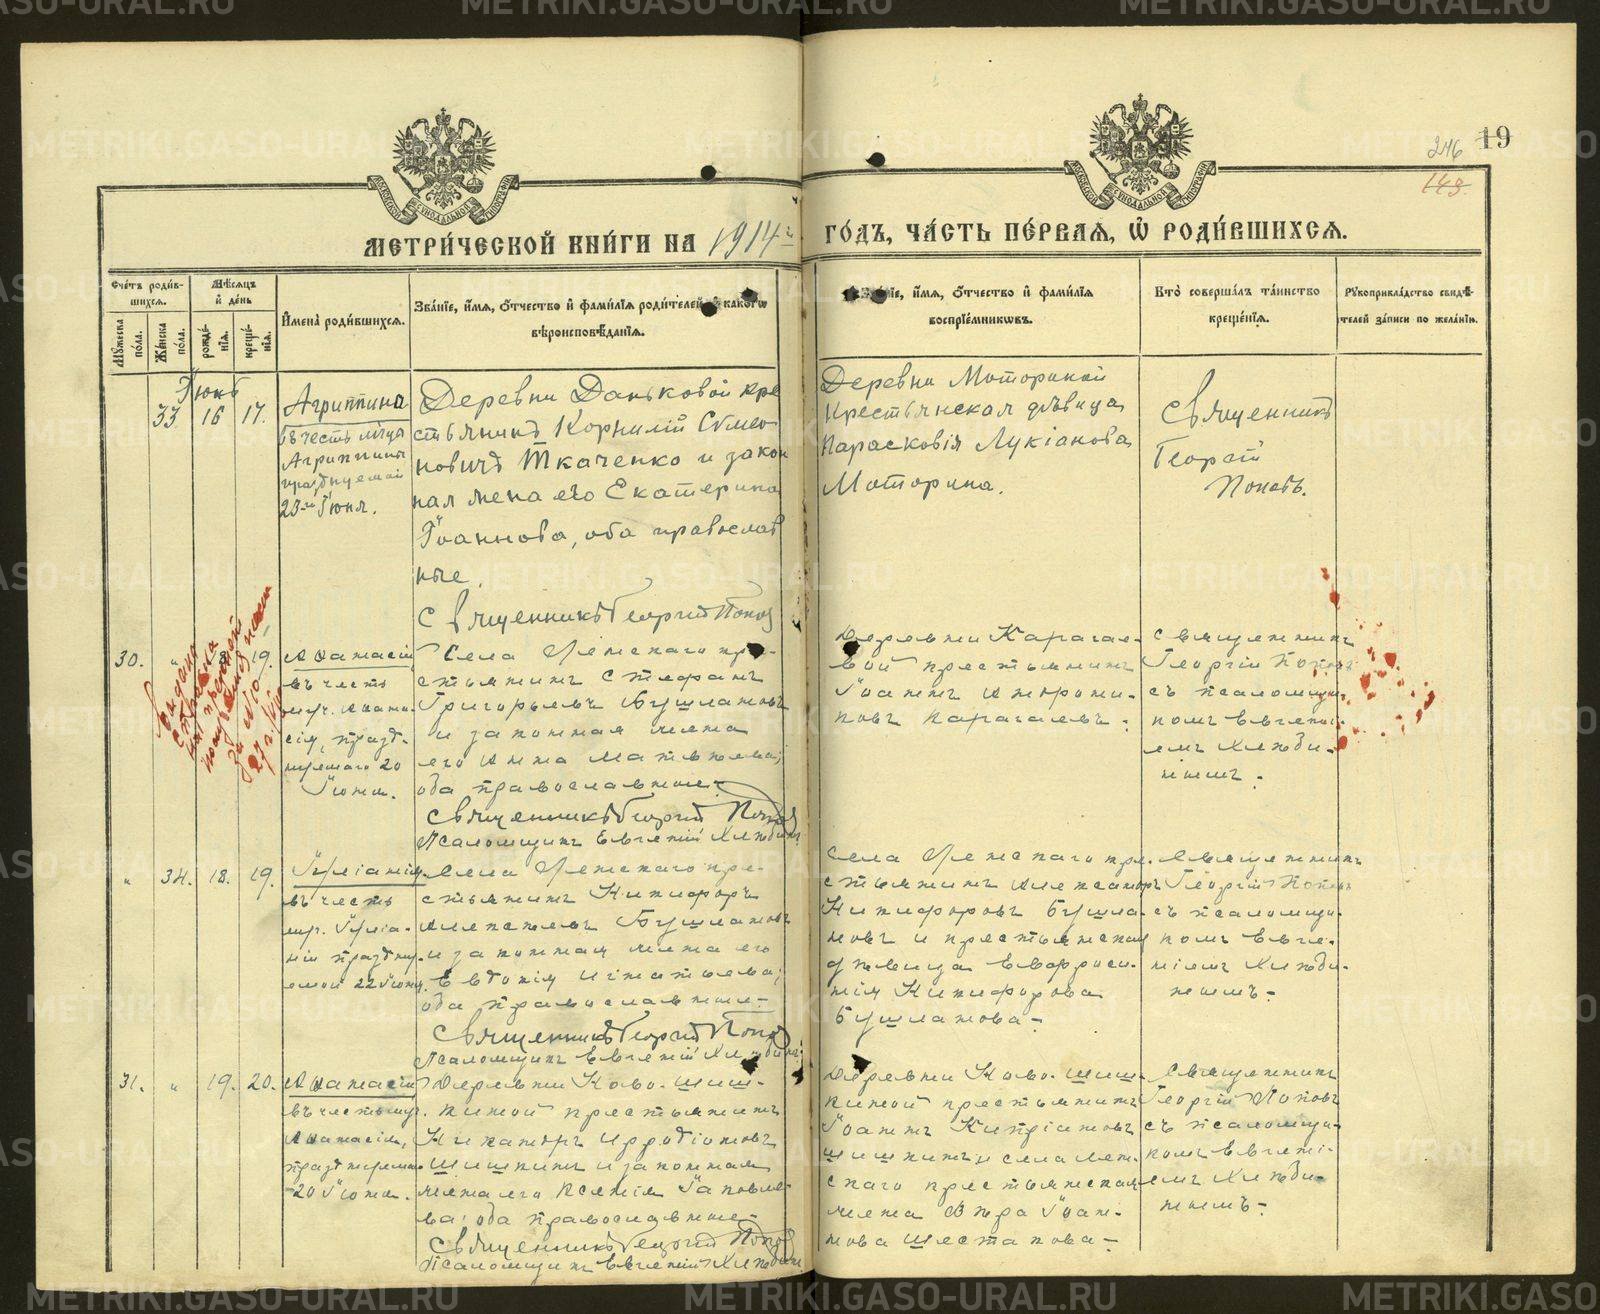 METRIKI.GASO-URAL.RU
19
246
143.
МЕТРИ́ЧЕСКОЙ КНИ́ГИ НА 1914й ГО́ДЪ, ЧА́СТЬ ПЕ́РВАЯ, Ѿ РОДИ́ВШИХСЯ.
Сче́тъ роди́в-
шихся.
Мꙋ́жеска по́ла.
Же́нска по́ла.
Мѣ́сяцъ и де́нь
рожде́-
нїя.
креще́-
нїя.
Имена̀ роди́вшихся.
Зва́нїе, и́мя, о́тчество и фами́лїя роди́телей, и како́гѡ
вѣроисповѣ́данїя.
Зва́нїе, и́мя, о́тчество и фами́лїя
воспрїе́мникѡвъ.
Кто̀ соверша́лъ та́инство
креще́нїя.
Рꙋкоприкла́дство свидѣ́-
телей за́писи по жела́нїю.
Іюнь
33 16 17.
Агриппина
въ честь мц.
Агриппины
празднуемой
23-го Іюня.
Деревни Даньковой кре
стьянинъ Корнилій Симео
новичъ Ткаченко и закон
ная жена его Екатерина
Іоаннова, оба православ
ные.
Священникъ Георгій Поповъ
Деревни Моториной
крестьянская дѣвица
Парасковія Лукіанова
Моторина.
Священникъ
Георгій
Поповъ.
30. 18. 19.
Аѳанасій
въ честь
муч. Аѳана-
сія, празд-
нуемаго 20
Іюня.
Села Летскаго кре-
стьянинъ Стефанъ
Григорьевъ Бушлановъ
и законная жена
его Анна Матвѣева,
оба православные.
Священникъ Георгій Поповъ
Псаломщикъ Евгеній Хлѣбинъ
Деревни Карагае-
вой крестьянинъ
Іоаннъ Андрони-
ковъ Карагаевъ.
Священникъ
Георгій Поповъ
съ псаломщи-
комъ Евгені-
емъ Хлѣби-
нымъ.
" 34. 18. 19.
Іуліанія
въ честь
муч. Іуліа-
ніи праздну-
емой 22 Іюня.
Села Летскаго кре-
стьянинъ Никифоръ
Алексѣевъ Бушлановъ
и законная жена его
Евдокія Игнатьева,
оба православные.
Священникъ Георгій Поповъ
Псаломщикъ Евгеній Хлѣбинъ
Села Летскаго кре-
стьянинъ Александръ
Никифоровъ Бушла-
новъ и крестьянская
дѣвица Евфроси-
нія Никифорова
Бушланова.
Священникъ
Георгій Поповъ
съ псаломщи-
комъ Евге-
ніемъ Хлѣби-
нымъ.
31. " 19. 20.
Аѳанасій
въ честь муч.
Аѳанасія,
празднуемаго
20 Іюня.
Деревни Ново-Шиш-
киной крестьянинъ
Никаноръ Иродіоновъ
Шишкинъ и законная
жена его Ксенія Іаковле-
ва, оба православные.
Священникъ Георгій Поповъ
Псаломщикъ Евгеній Хлѣбинъ
Деревни Ново-Шиш-
киной крестьянинъ
Іоаннъ Кипріановъ
Шишкинъ и села Лет-
скаго крестьянская
жена Вѣра Іоан-
нова Шестакова.
Священникъ
Георгій Поповъ
съ псаломщи-
комъ Евгені-
емъ Хлѣби-
нымъ.